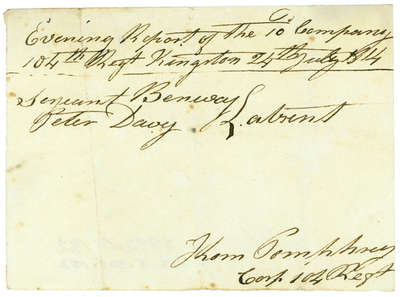 Evening Report of the 10 Company
104th Regt Kingston 24th July 1814
Serjeant Benway
Peter Davy } absent
Thom Pomphrey
Corp 104 Regt